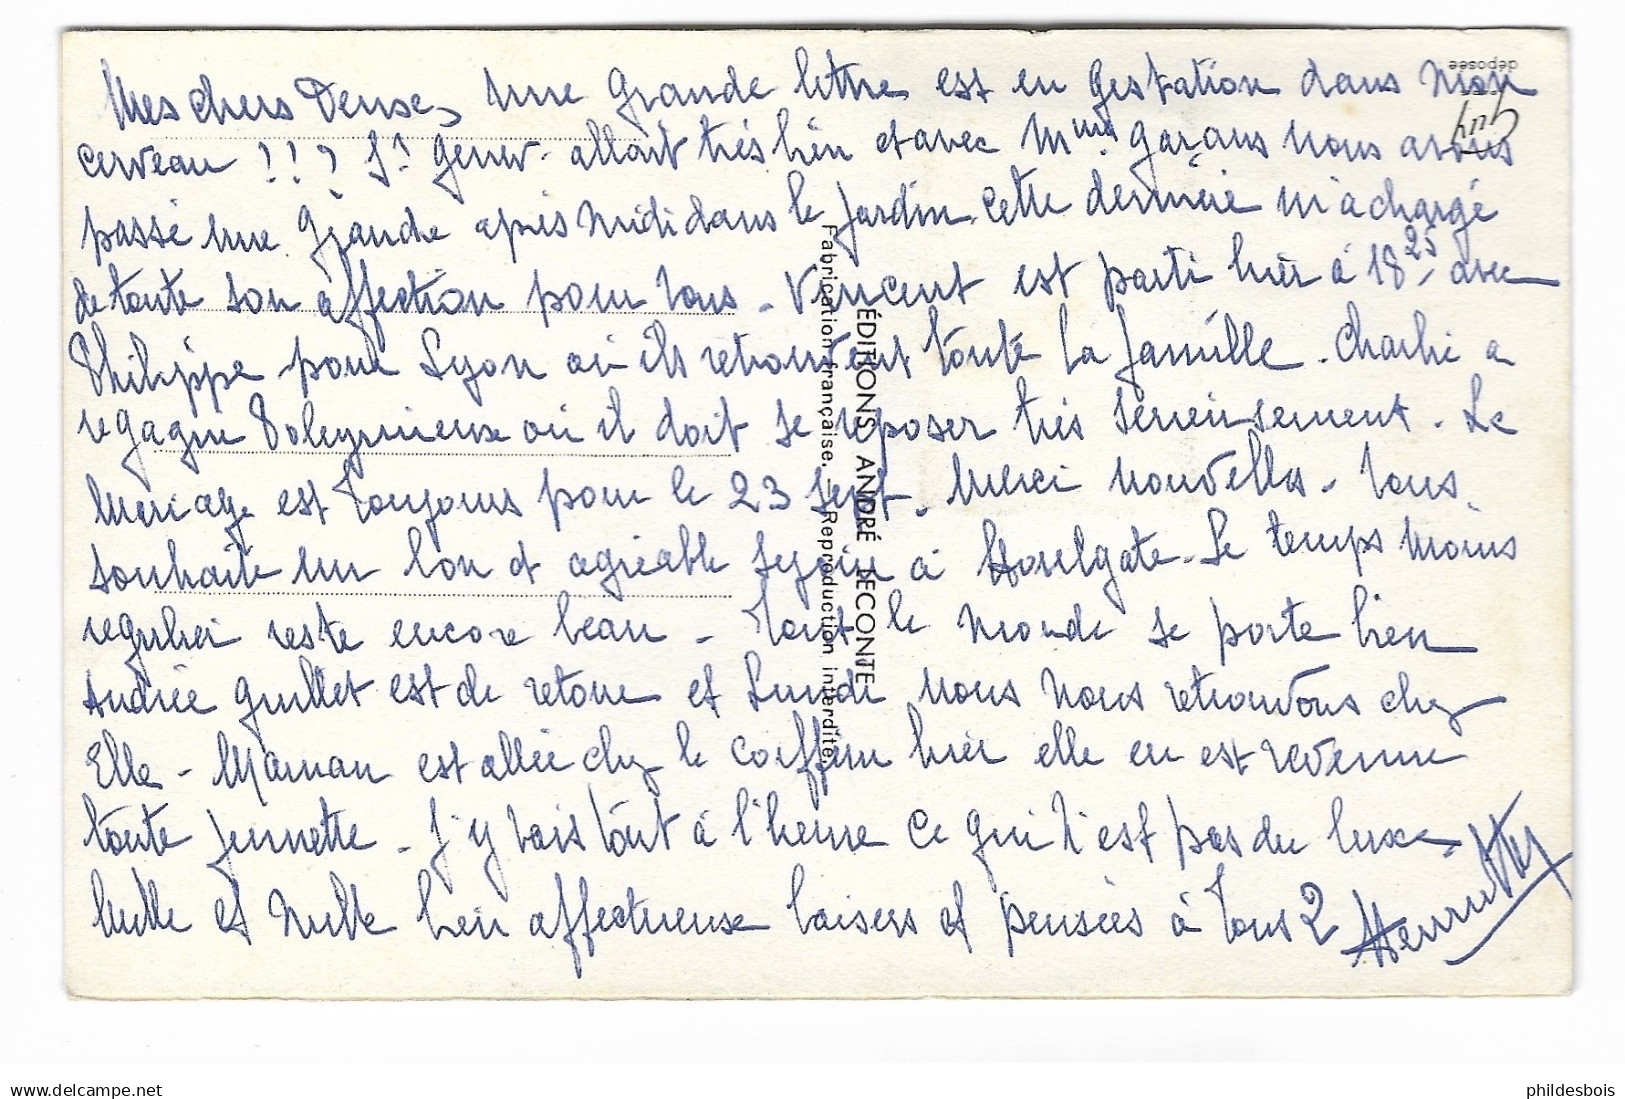 Mes chers Denise, Une grande lettre est en gestation dans mon
cerveau !!? St Genev. allait très bien et avec Mme Garaus nous avons
passé une grande après midi dans le jardin. Cette dernière m'a chargé
de toute son affection pour vous - Vincent est parti hier à 18 25 avec
Philippe pour Lyon où ils retrouvent toute la famille - Charlie a
regagné où il doit se reposer très sérieusement - Le
Mariage est toujours pour le 23 Sept. Merci nouvelles - Vous
souhaite un bon et agréable séjour à Houlgate - Le temps moins
régulier reste encore beau - Tout le monde se porte bien
Andrée Guillet est de retour et Lundi nous nous retrouvons chez
Elle - Maman est allée chez le coiffeur hier elle en est revenue
toute jeunette - J'y vais tout à l'heure ce qui n'est pas du luxe.
Mille et Mille bien affectueuse baisers et pensées à vous 2
déposée
ÉDITIONS ANDRÉ LECONTE
Fabrication française. — Reproduction interdite.
https://www.delcampe.net
phildesbois